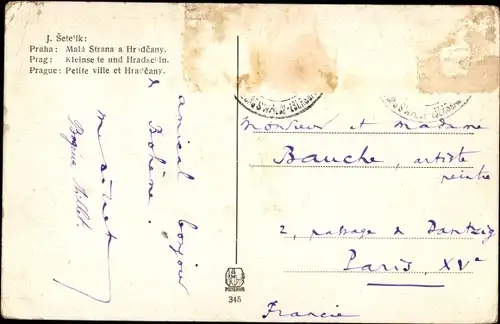 J. Šetelík:
Praha: Malá Strana a Hradčany.
Prag: Kleinseite und Hradschin.
Prague: Petite ville et Hradčany.
amical bonjour
de Bohème.
Monsieur et Madame
Bauche, artiste
peintre
2, passage de Dantzig
Paris, XVe
Francie
MINERVA
345